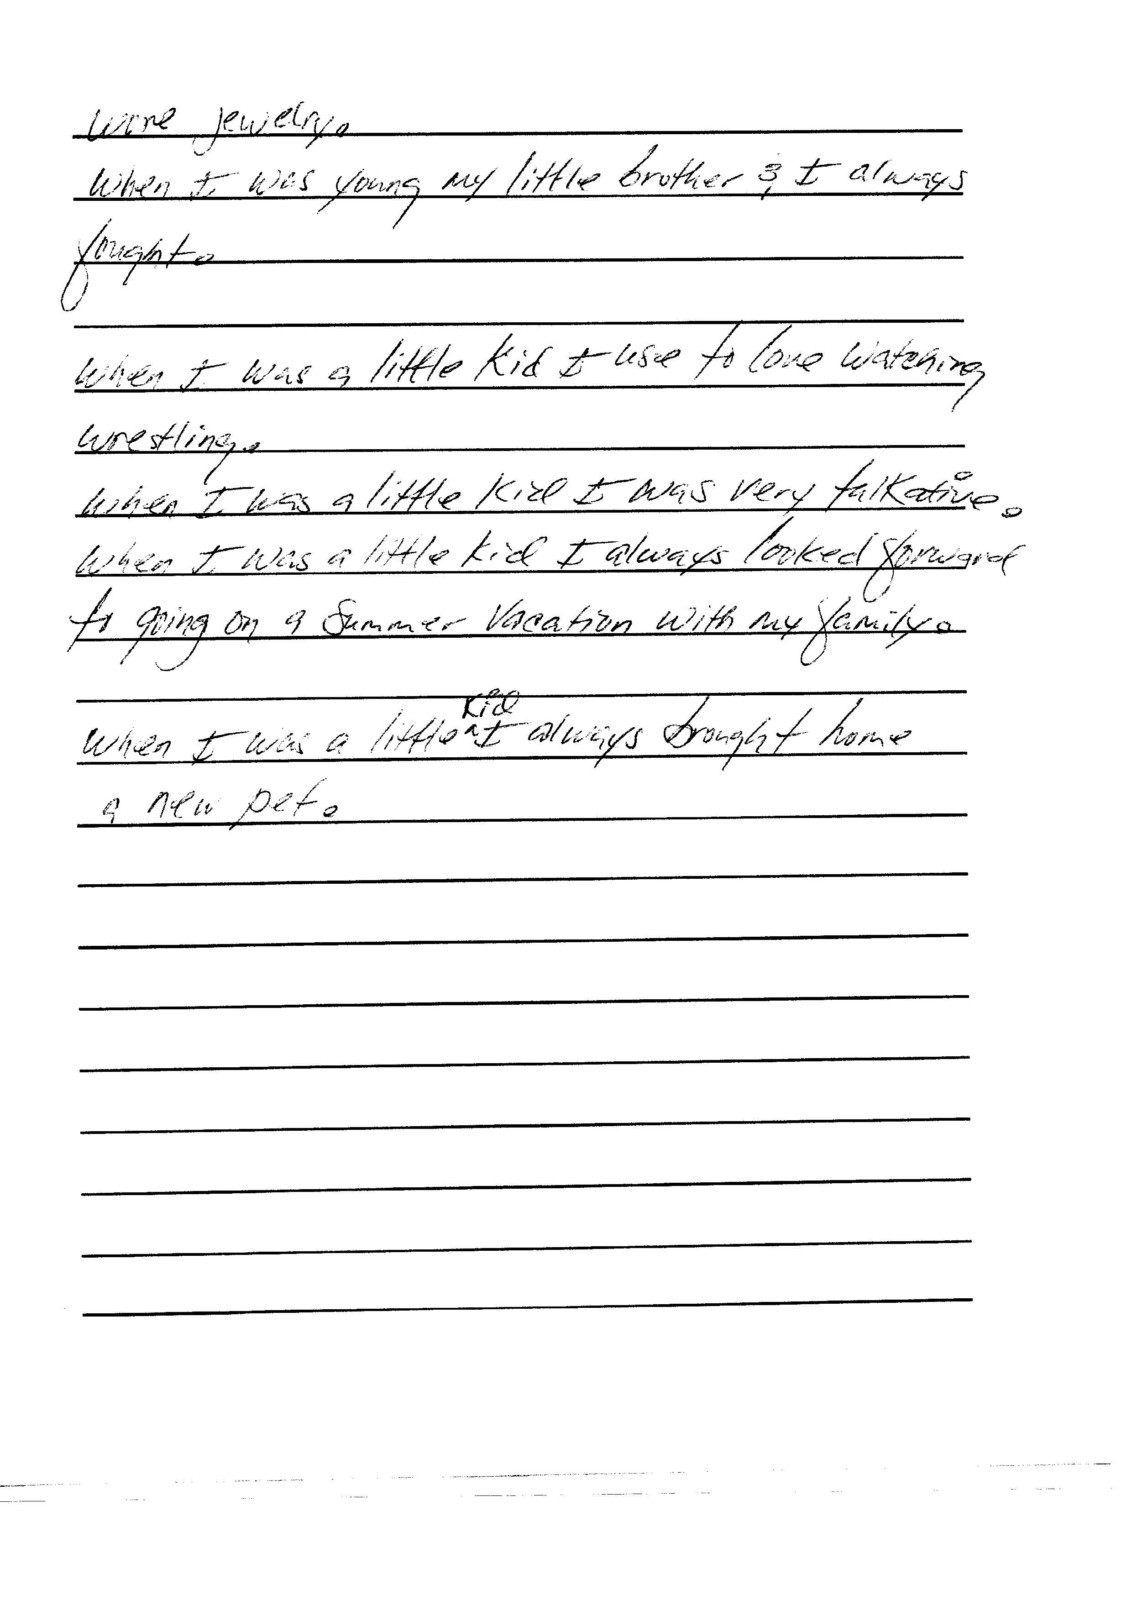 wore jewelry.
When I was young my little brother & I always
fought.
When I was a little kid I use to love watching
wrestling.
When I was a little kid I was very talkative.
When I was a little kid I always looked forward
to going on a summer vacation with my family.
When I was a little kid I always brought home
a new pet.